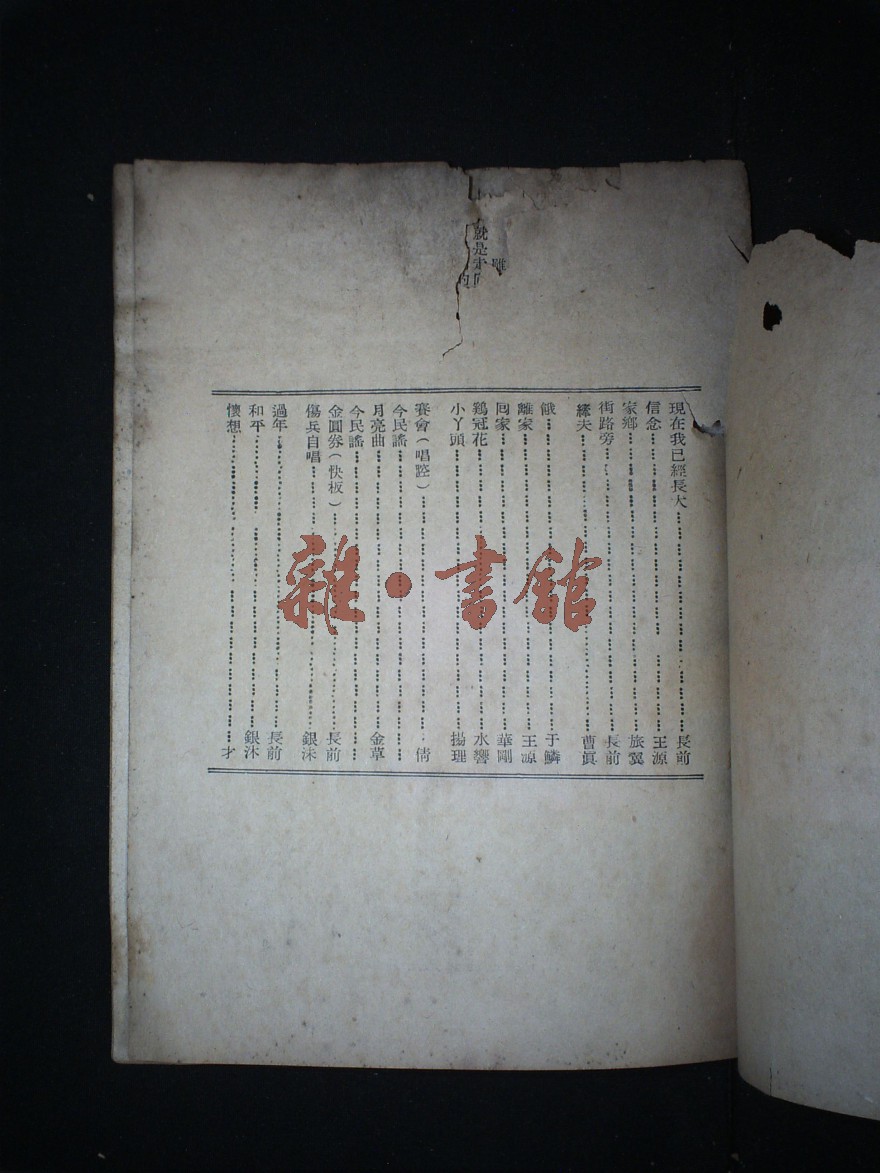 就是
現在我已經長大……長前
信念……王源
家鄉……旅翼
街路旁……長前
縴夫……曹眞
餓……于鱗
離家……王源
回家……華剛
鷄冠花……水響
小丫頭……揚理
賽會(唱腔)……倩
今民謠……
月亮曲……金草
今民謠……
金圓券(快板)……長前
傷兵自唱……銀沫
過年……長前
和平……銀沐
懷想……才
雜·書館